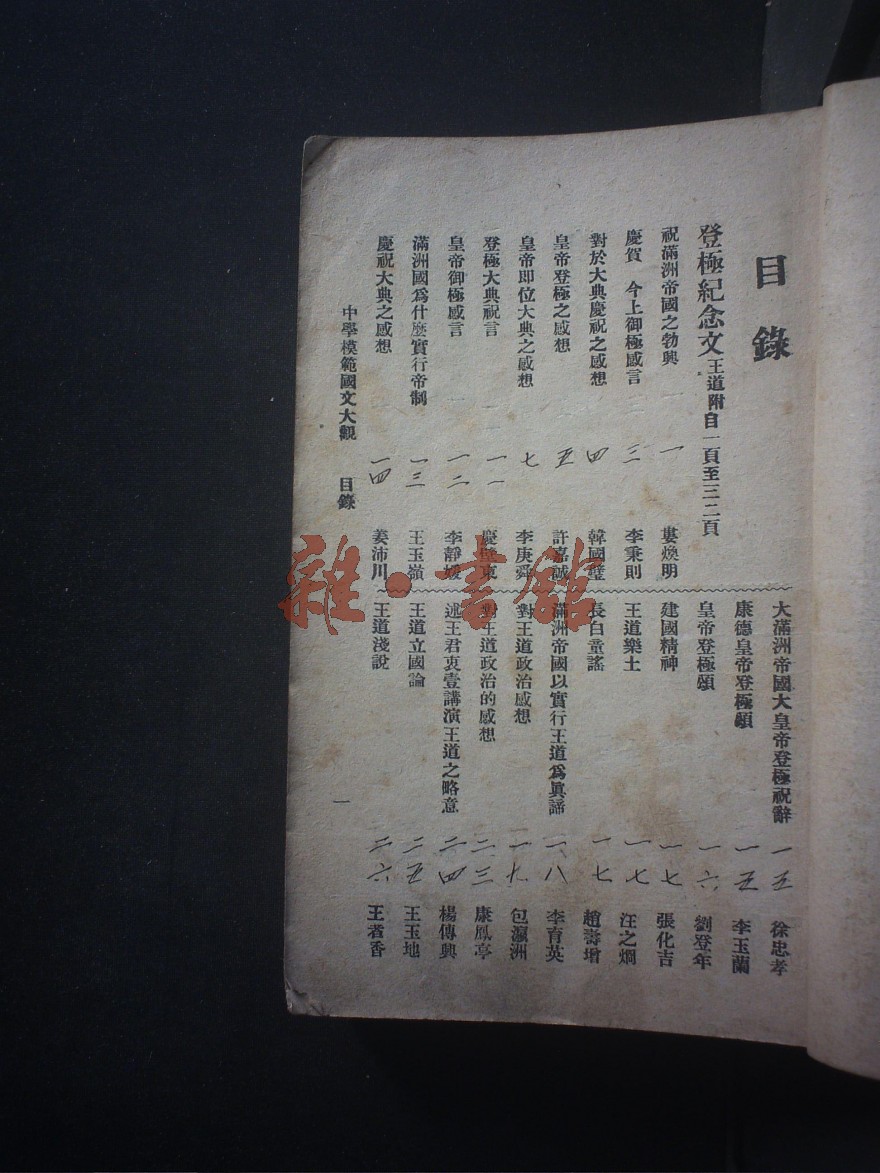 目錄
登極紀念文 王道附自一頁至三二頁
祝滿洲帝國之勃興 一 婁煥明
慶賀 今上御極感言 三 李秉則
對於大典慶祝之感想 四 韓國璧
皇帝登極之感想 五 許嘉誠
皇帝即位大典之感想 七 李庚舜
登極大典祝言 一一 慶東
皇帝御極感言 一二 李靜媛
滿洲國爲什麼實行帝制 一三 王玉嶺
慶祝大典之感想 一四 姜沛川
大滿洲帝國大皇帝登極祝辭 一五 徐忠孝
康德皇帝登極頌 一五 李玉蘭
皇帝登極頌 一六 劉登年
建國精神 一七 張化吉
王道樂土 一七 汪之炯
長白童謠 一七 趙壽增
滿洲帝國以實行王道爲眞諦 一八 李育英
對王道政治感想 一九 包瀛洲
對王道政治的感想 二三 康鳳亭
述王君衷壹講演王道之略意 二四 楊傳興
王道立國論 二五 王玉地
王道淺說 二六 王者香
中學模範國文大觀 目錄 一
雜·書館